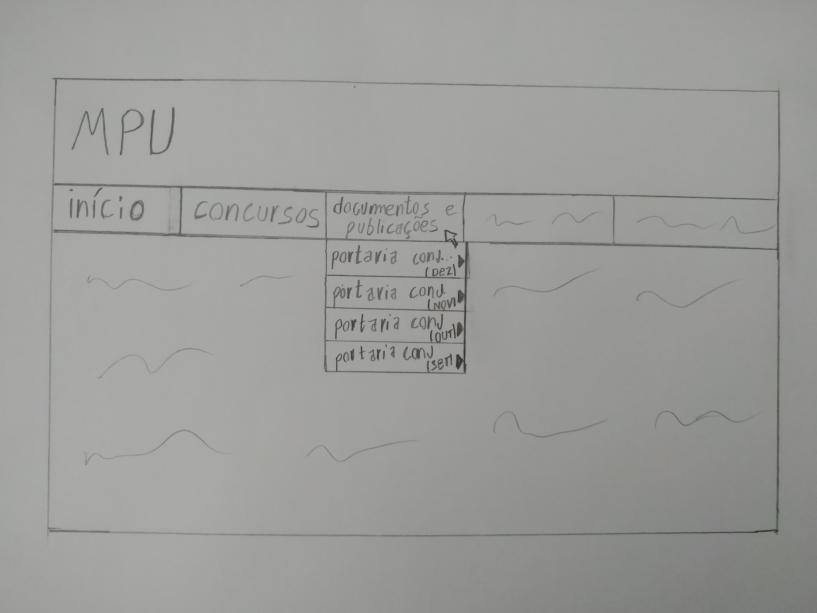 MPU
início
concursos
documentos e
publicações
portaria conj...
(DEZ)
portaria conj
(NOV)
portaria conj
(OUT)
portaria conj
(SET)